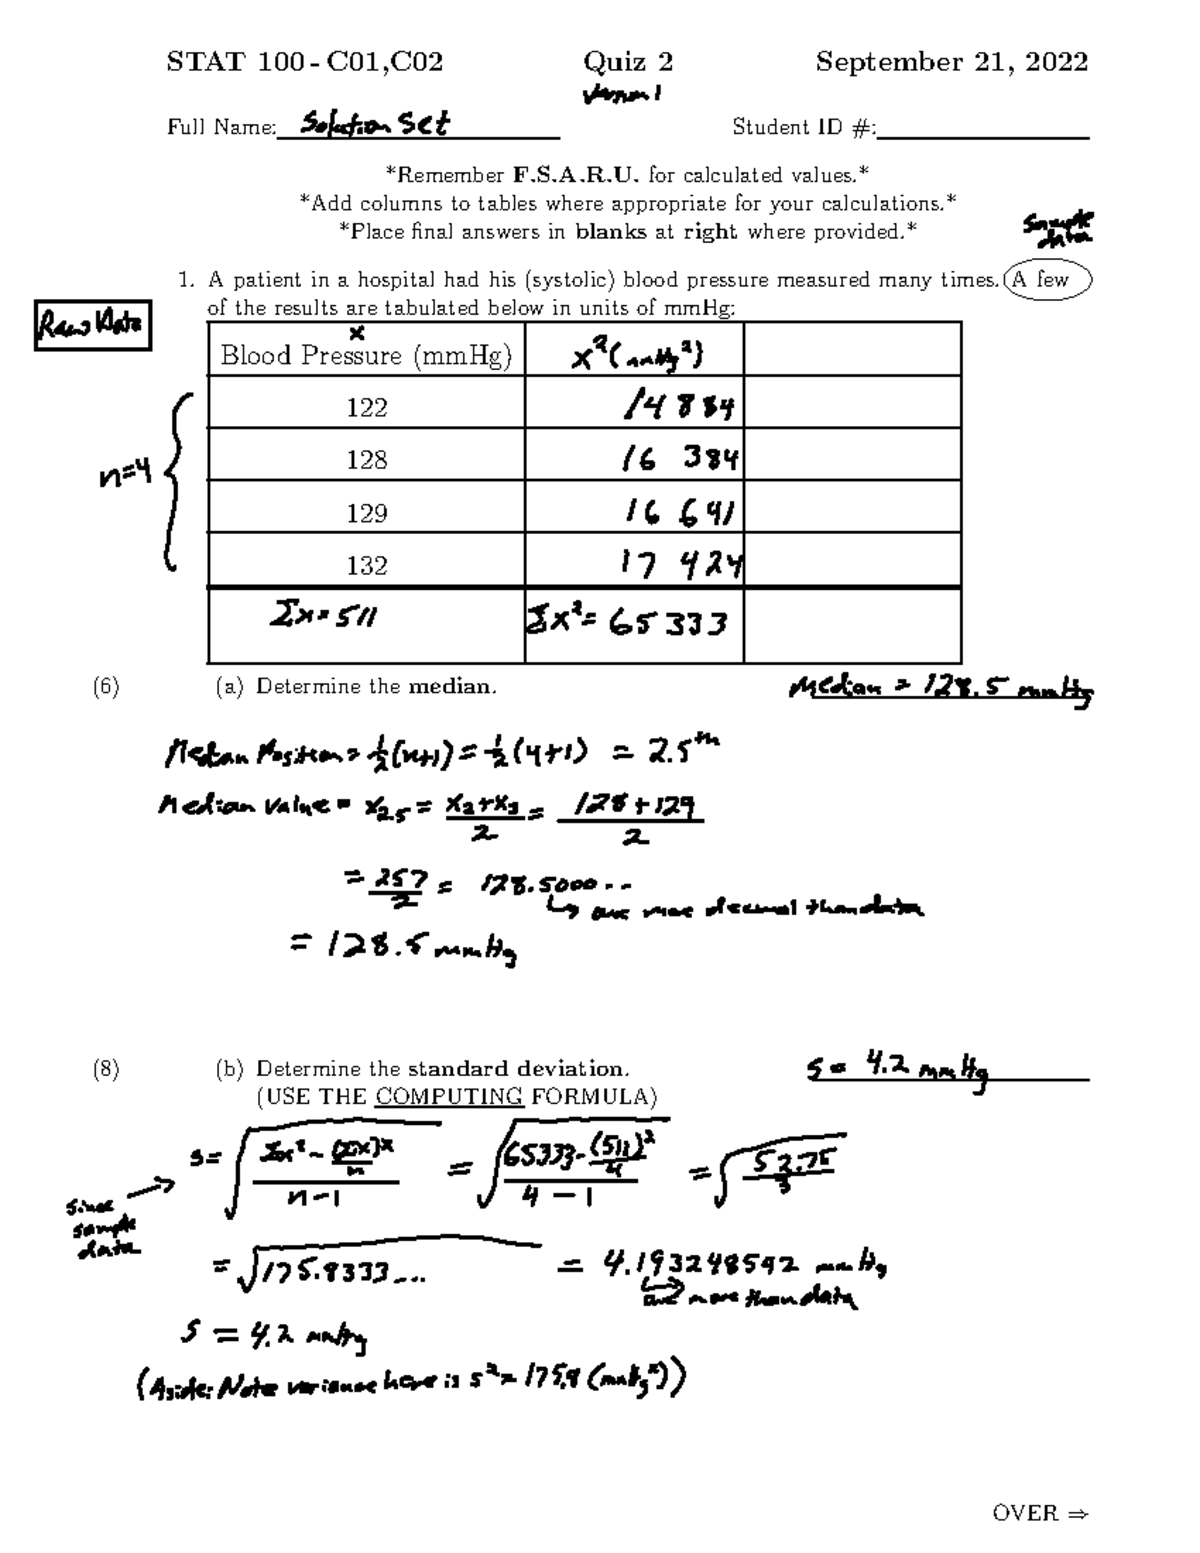 STAT 100 - C01,C02 Quiz 2 September 21, 2022
Version 1
Full Name: Solution Set Student ID #:
*Remember F.S.A.R.U. for calculated values.*
*Add columns to tables where appropriate for your calculations.*
*Place final answers in blanks at right where provided.*
Sample data
1. A patient in a hospital had his (systolic) blood pressure measured many times. A few
of the results are tabulated below in units of mmHg:
Raw Data
x
Blood Pressure (mmHg) x²(mmHg²)
122 14 884
128 16 384
n=4
129 16 641
132 17 424
Σx = 511 Σx² = 65 333
(6) (a) Determine the median. Median = 128.5 mmHg
Median Position = 1/2(n+1) = 1/2(4+1) = 2.5th
Median value = x2.5 = (x2+x3)/2 = (128+129)/2
= 257/2 = 128.5000...
↳ one more decimal than data
= 128.5 mmHg
(8) (b) Determine the standard deviation. s = 4.2 mmHg
(USE THE COMPUTING FORMULA)
s = √((Σx² - (Σx)²/n)/(n-1)) = √((65333-(511)²/4)/(4-1)) = √(52.75/3)
since sample data
= √175.8333... = 4.193248542 mmHg
one more than data
s = 4.2 mmHg
(Aside: Note variance here is s² = 175.8 (mmHg²))
OVER ⇒